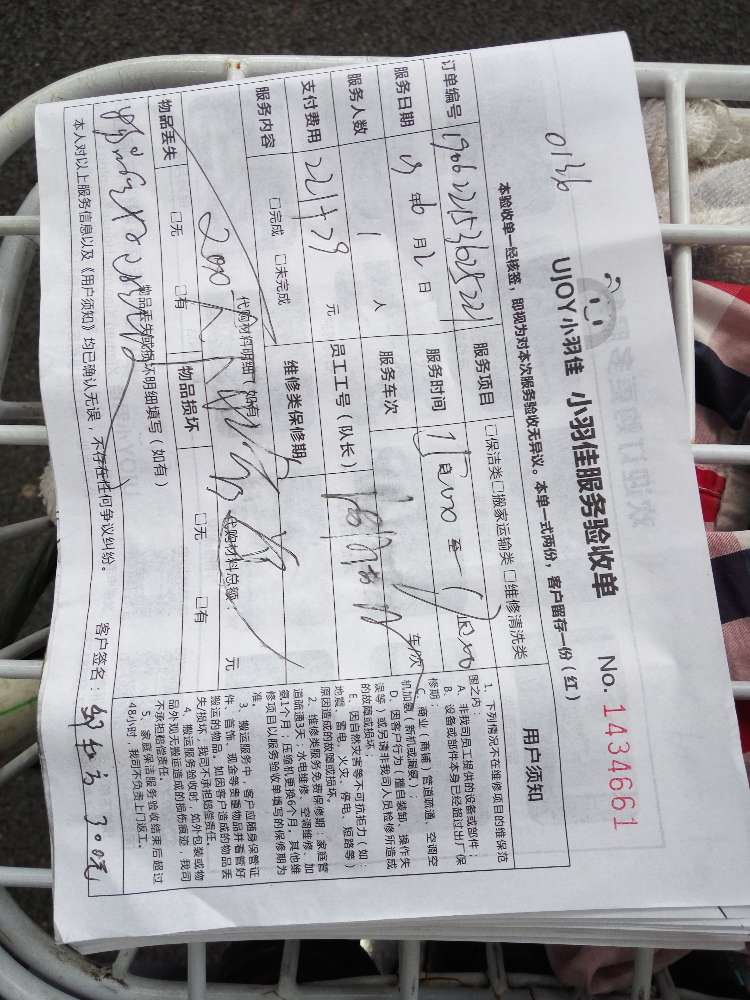 0136
UJOY小羽佳 小羽佳服务验收单 No. 1434661
本验收单一经核签，即视为对本次服务验收无异议。本单一式两份，客户留存一份（红）
订单编号 服务项目 □保洁类□搬家运输类 □维修清洗类
服务日期 19 年 6 月 2 日 服务时间 至
服务人数 1 人 服务车次 车次
支付费用 元 员工工号（队长）
服务内容 □完成 □未完成 维修类保修期
代购材料明细（如有） 代购材料总额： 元
物品丢失 □无 □有 物品损坏 □无 □有
物品丢失或损坏明细填写（如有）
本人对以上服务信息以及《用户须知》均已确认无误，不存在任何争议纠纷。 客户签名： 300元
用户须知
1、下列情况不在维修项目的维保范
围之内：
A、非我司员工提供的设备或部件；
B、设备或部件本身已经超过出厂保
修期； C、商业（商铺）管道疏通、空调空
机加氨（新机或漏氨）；
D、因客户行为（擅自装卸、操作失
误等）或另请非我司人员检修所造成
的故障或损坏；
E、因自然灾害等不可抗拒力（如：
地震、雷电、火灾、停电、短路等）
原因造成的故障或损坏。
2、维修类服务免费保修期：家庭管
道疏通3天；水电维修、空调维修、加
氨1个月；压缩机更换6个月。其他维
修项目以服务验收单填写的保修期为
准。
3、搬运服务中，客户应随身保管证
件、首饰、现金等贵重物品并看管好
搬运的物品。如因客户造成的物品丢
失/损坏，我司不承担赔偿责任。
4、搬运服务验收时：如外包装或物
品外观无搬运造成的损伤痕迹，我司
不承担赔偿责任。
5、家庭保洁服务验收结束后超过
48小时，我司不负责上门返工。